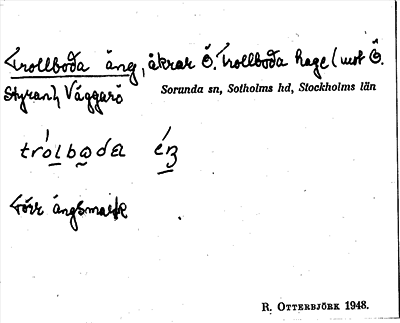 Trollboda äng, åkrar Ö. Trollboda hage (mot Ö.
Styran), Väggarö
Sorunda sn, Sotholms hd, Stockholms län
tról bωda éŋ
Förr ängsmark
R. OTTERBJÖRK 1948.